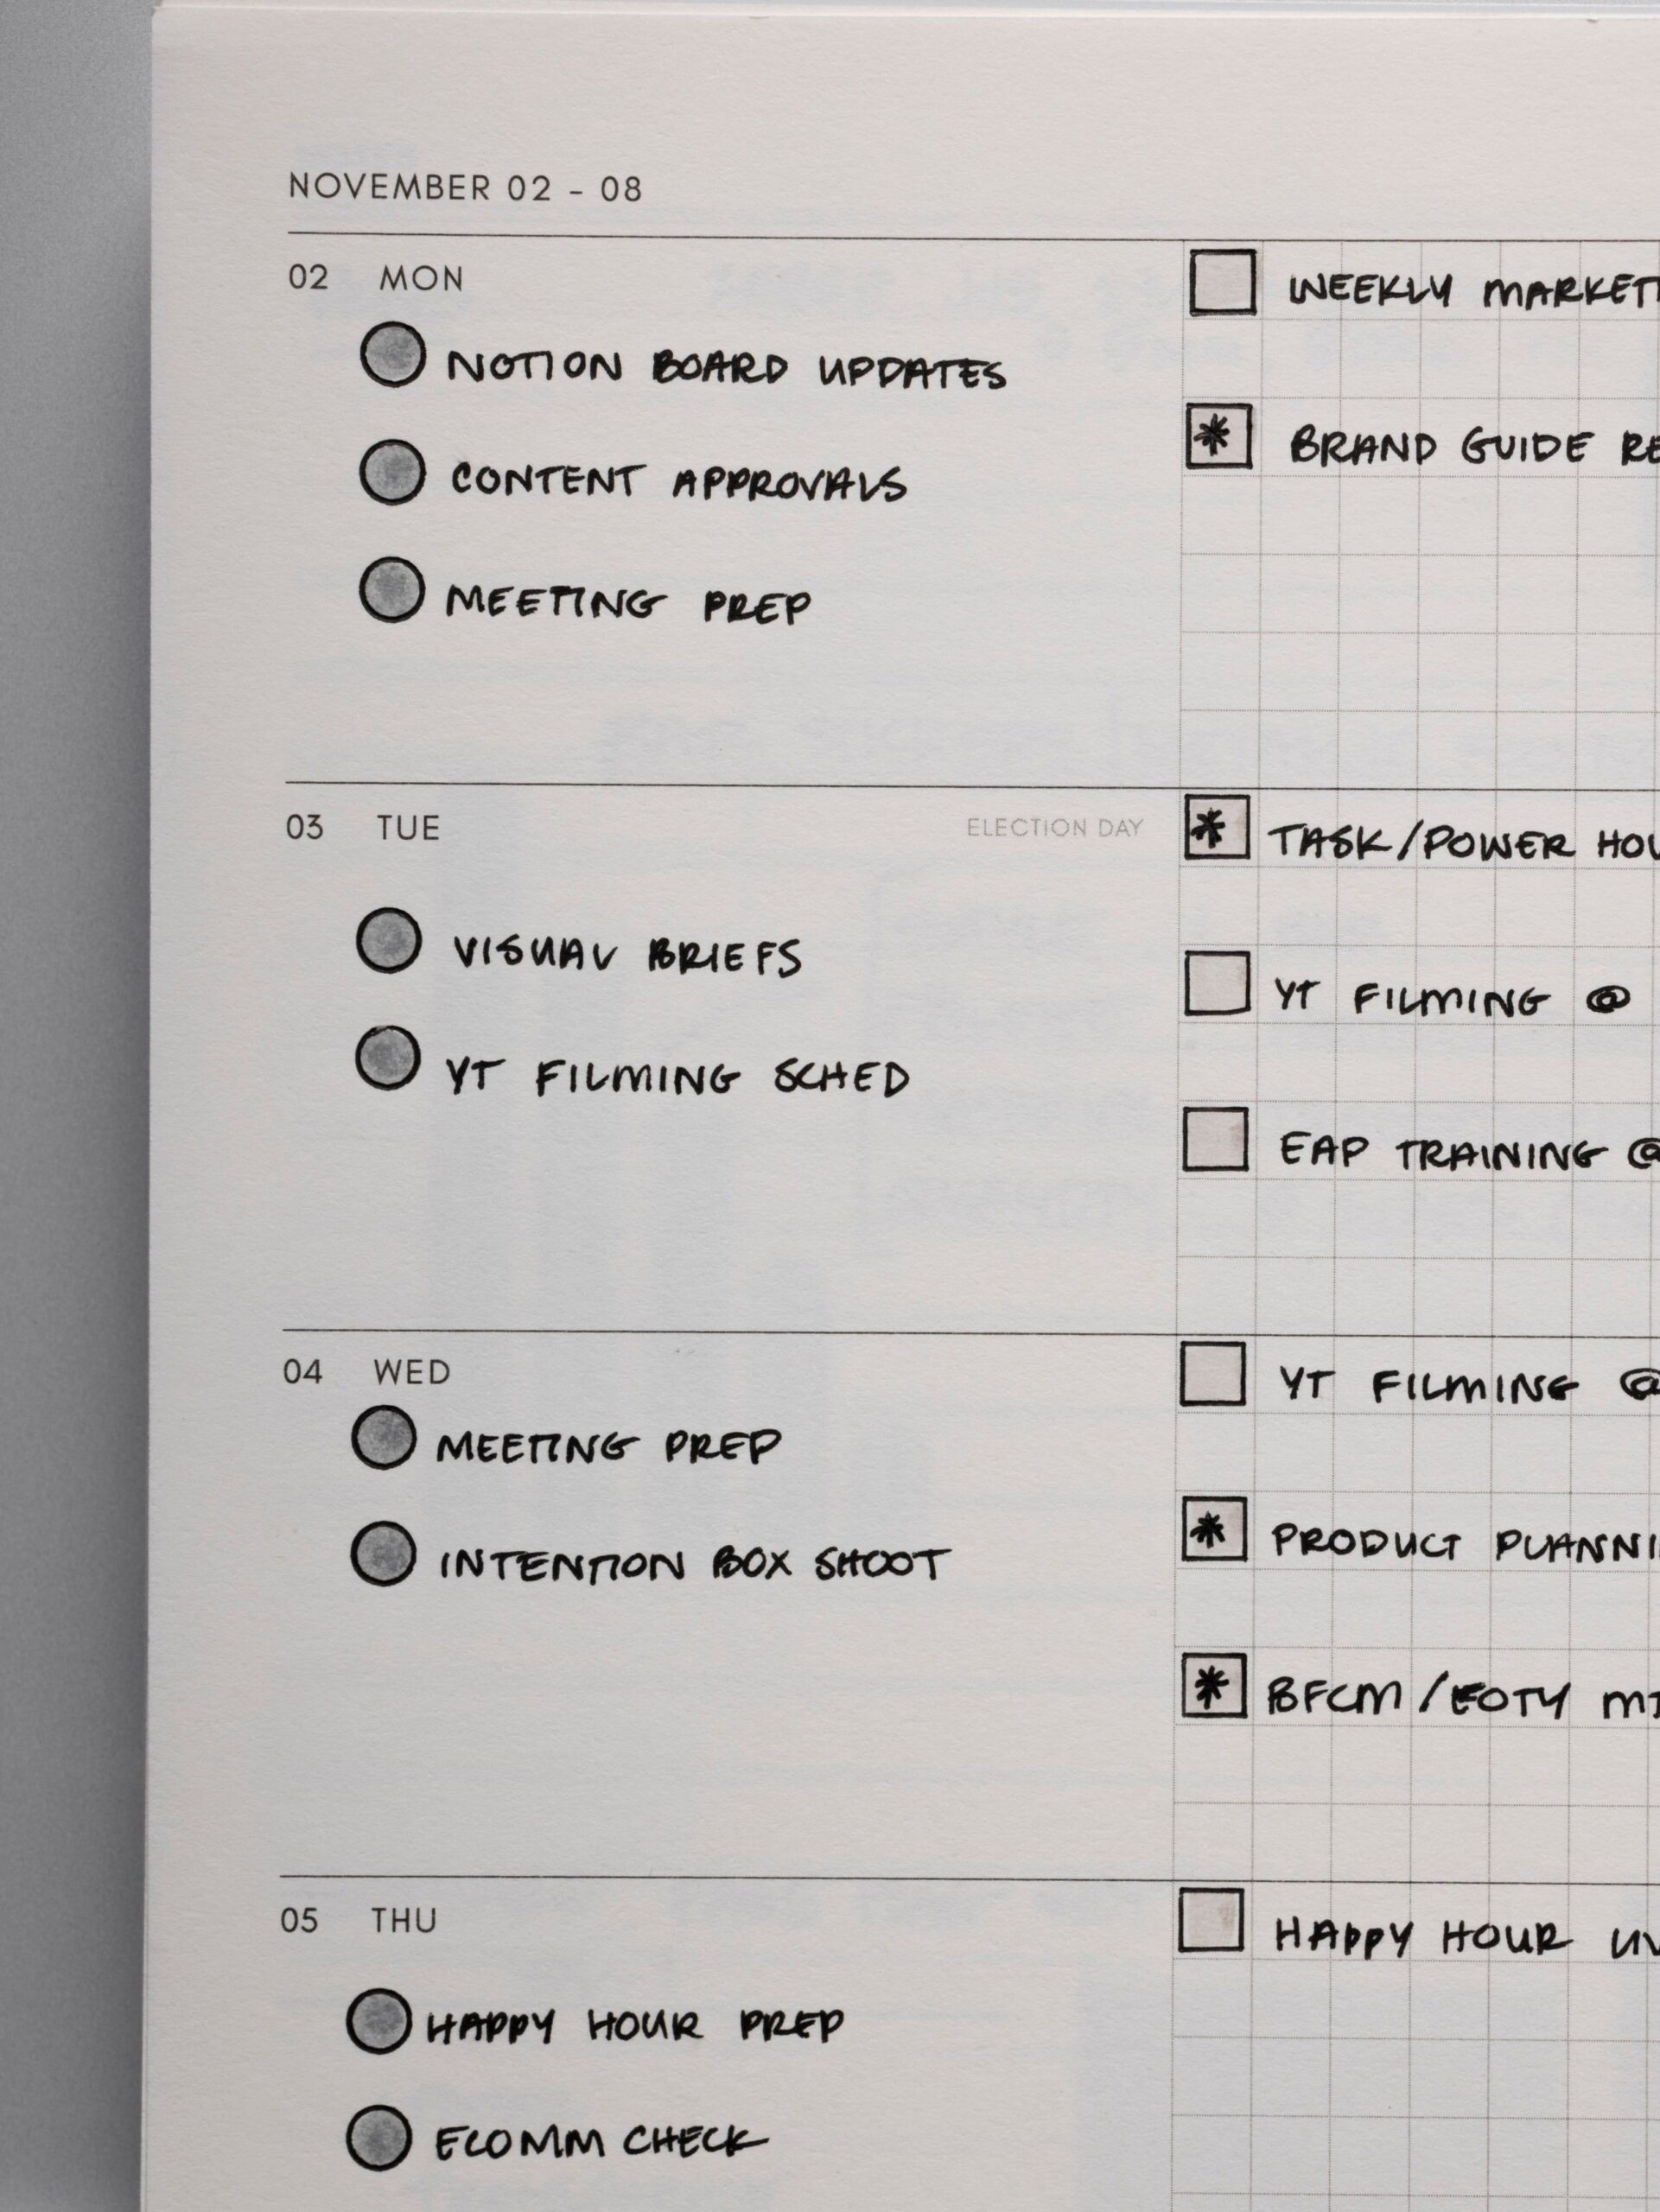 NOVEMBER 02 - 08
02 MON
NOTION BOARD UPDATES
CONTENT APPROVALS
MEETING PREP
WEEKLY
* BRAND GUIDE
03 TUE
ELECTION DAY
VISUAL BRIEFS
YT FILMING SCHED
* TASK/POWER
YT FILMING @
EAP TRAINING @
04 WED
MEETING PREP
INTENTION BOX SHOOT
YT FILMING @
* PRODUCT
* BFCM/EOTY
05 THU
HAPPY HOUR PREP
ECOMM CHECK
HAPPY HOUR